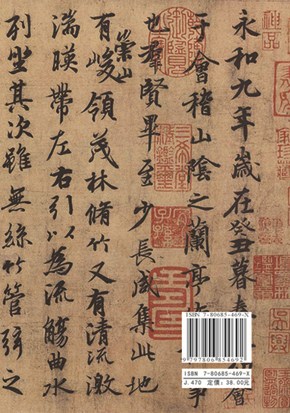 永和九年歲在癸丑暮春
于會稽山陰之蘭亭
也羣賢畢至少長咸集此地
有崇山峻領茂林脩竹又有清流激
湍暎帶左右引以為流觴曲水
列坐其次雖無絲竹管弦之
ISBN 7-80685-469-X
9 787806 854692
ISBN 7-80685-469-X
J.470 定价：38.00元